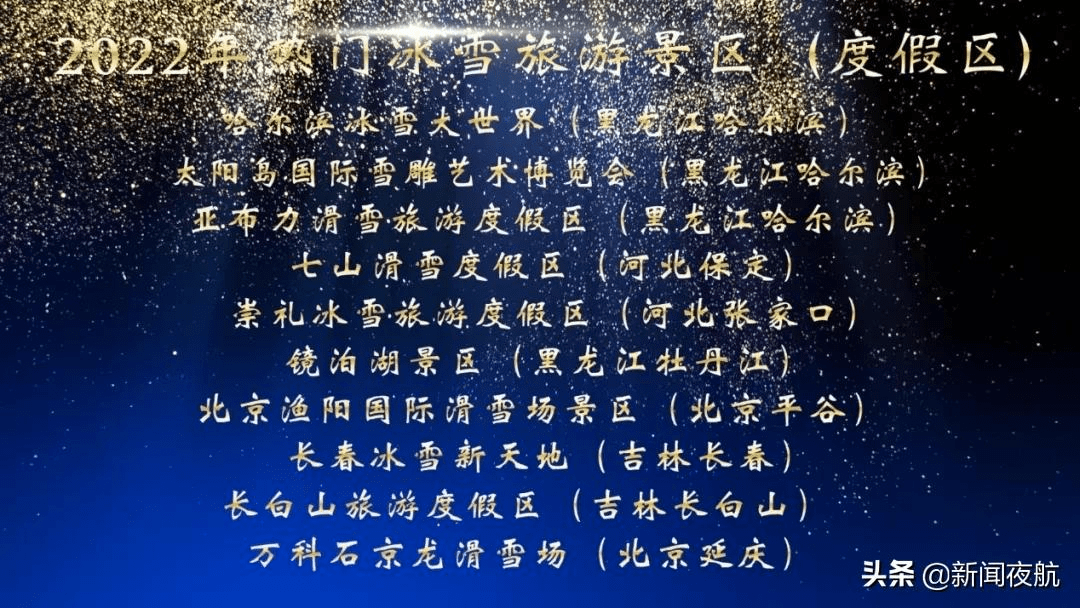 2022年热门冰雪旅游景区（度假区）
哈尔滨冰雪大世界（黑龙江哈尔滨）
太阳岛国际雪雕艺术博览会（黑龙江哈尔滨）
亚布力滑雪旅游度假区（黑龙江哈尔滨）
七山滑雪度假区（河北保定）
崇礼冰雪旅游度假区（河北张家口）
镜泊湖景区（黑龙江牡丹江）
北京渔阳国际滑雪场景区（北京平谷）
长春冰雪新天地（吉林长春）
长白山旅游度假区（吉林长白山）
万科石京龙滑雪场（北京延庆）
头条 @新闻夜航